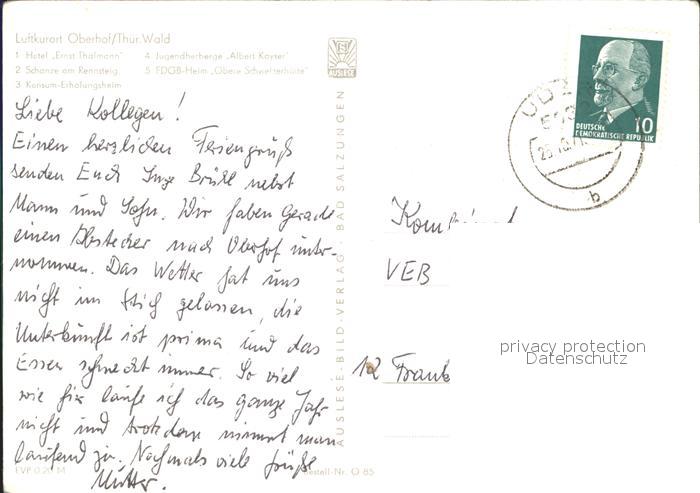 Luftkurort Oberhof/Thür. Wald
1 Hotel „Ernst Thälmann"   4 Jugendherberge „Albert Kayser"
2 Schanze am Rennsteig   5 FDGB-Heim „Obere Schweizerhütte"
3 Konsum-Erholungsheim
AUSLESE
Liebe Kollegen!
Einen herzlichen Feriengruß
senden Euch Inge Brühl nebst
Mann und Sohn. Wir haben Gerade
einen Abstecher nach Oberhof unter-
nommen. Das Wetter hat uns
nicht im Stich gelassen, die
Unterkunft ist prima und das
Essen schmeckt immer. So viel
wie hier laufe ich das ganze Jahr
nicht und trotzdem nimmt man
laufend zu. Nochmals viele Grüße
EVP 0.20 M
Bestell-Nr. O 85
AUSLESE-BILD-VERLAG · BAD SALZUNGEN
DEUTSCHE
DEMOKRATISCHE REPUBLIK
10
b
VEB
12 Frank
privacy protection
Datenschutz